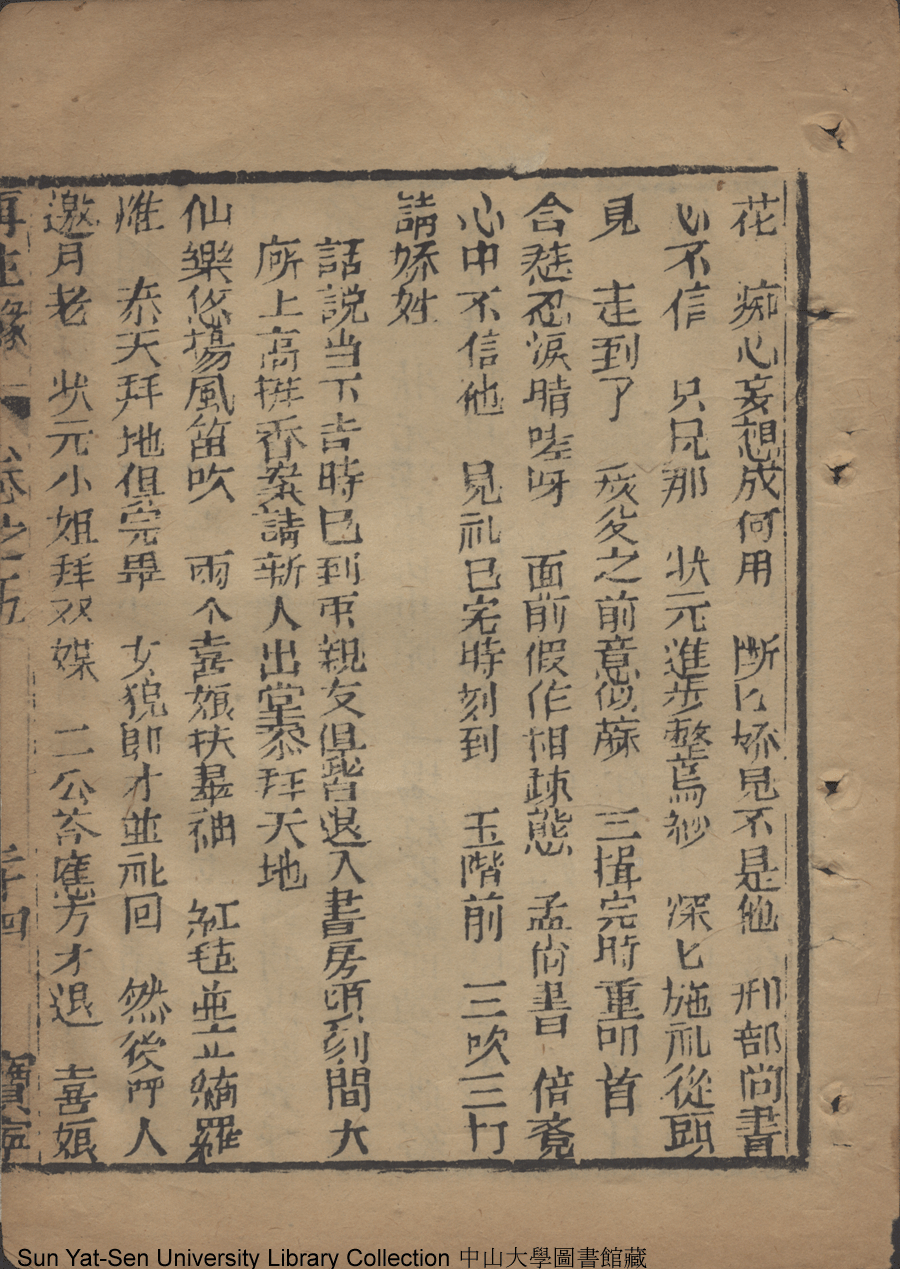 花 痴心妄想成何用 断匕嬌兒不是他 刑部尚書
心不信 只見那 状元進步整烏紗 深匕施礼從頭
見 走到了 夜父之前意似蔴 三揖完時重叩首
含愁忍淚暗嗟呀 面前假作相疎態 孟尚書 倍覔
心中不信他 見礼已完時刻到 玉階前 三吹三打
請嬌姓
話説当下吉時已到兩親友俱皆退入書房頃刻間大
廳上高擺香案請新人出堂叅拜天地
仙樂悠揚風笛吹 兩个喜娘扶翠袖 紅毡並立綺羅
惟 叅天拜地俱完畢 女貌郎才並礼回 然後門人
邀月老 状元小姐拜双媒 二公荅應方才退 喜娘
再生緣 卷之五 二十四 寶寧
Sun Yat-Sen University Library Collection 中山大學圖書館藏